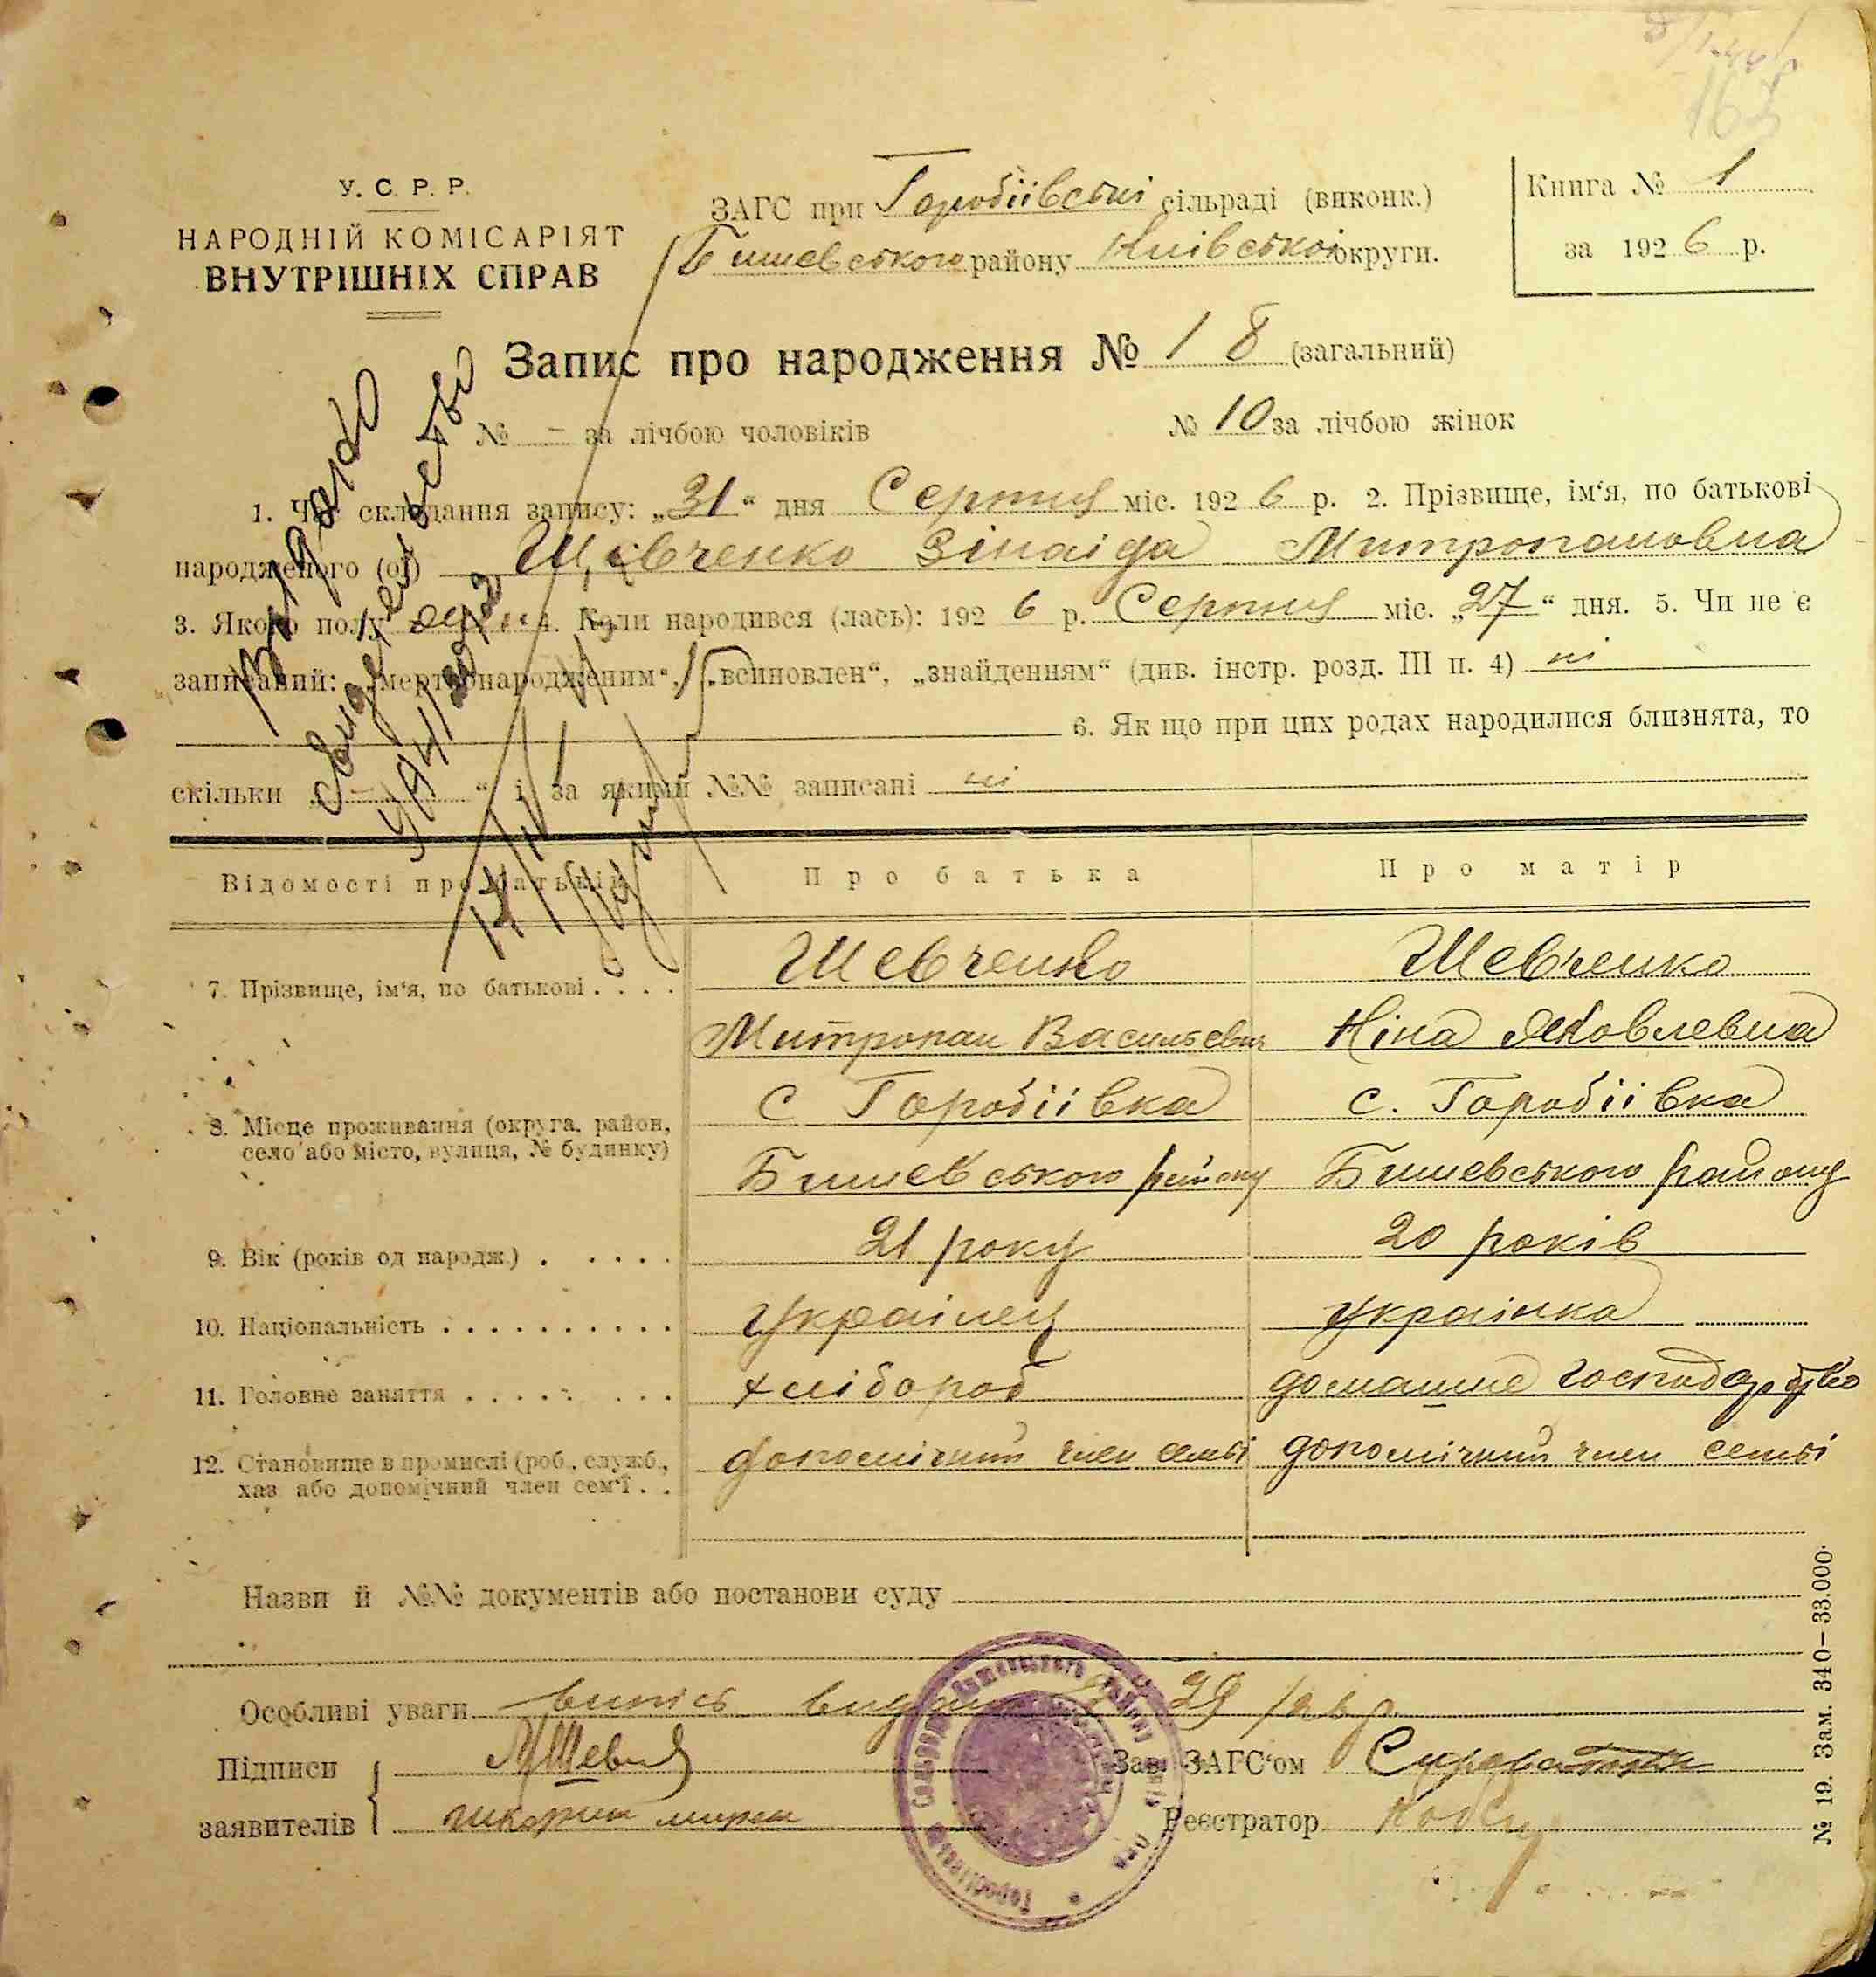 У. С. Р. Р.
НАРОДНІЙ КОМІСАРІЯТ
ВНУТРІШНІХ СПРАВ
ЗАГС при Горобіївські сільраді (виконк.)
Бишевського району Київської округи.
Книга № 1
за 1926 р.
Запис про народження № 18 (загальний)
№ - за лічбою чоловіків
№ 10 за лічбою жінок
1. Час складання запису: „31“ дня Серпня міс. 1926 р. 2. Прізвище, ім‘я, по батькові
народженого (ої) Шевченко Зінаіда Митропановна
3. Якого полу жін 4. Коли народився (лась): 1926 р. Серпня міс. „27“ дня. 5. Чи не є
записаний: „мертвонародженим“, „всиновлен“, „знайденням“ (див. інстр. розд. III п. 4) ні
6. Як що при цих родах народилися близнята, то
скільки „ - “ і за якими №№ записані ні
Відомості про батьків
Про батька
Про матір
7. Прізвище, ім‘я, по батькові . . . .
Шевченко
Митропан Васильевич
Шевченко
Ніна Яковлевна
8. Місце проживання (округа, район,
село або місто, вулиця, № будинку)
с Горобіівка
Бишевського району
с. Горобіівка
Бишевського району
9. Вік (років од народж.) . . . . .
21 року
20 років
10. Національність . . . . . . . . . .
Украінец
Украінка
11. Головне заняття . . . . . . . .
хлібороб
домашне господарство
12. Становище в промислі (роб., служб.,
хаз або допомічний член сем‘ї . .
допомічний член семьі
допомічний член семьі
Назви й №№ документів або постанови суду
Особливі уваги випісь
Підписи
заявителів
МШевч
Зав. ЗАГС‘ом
Реєстратор
№ 19. Зам. 340—33.000.
Выдано
свидетельство